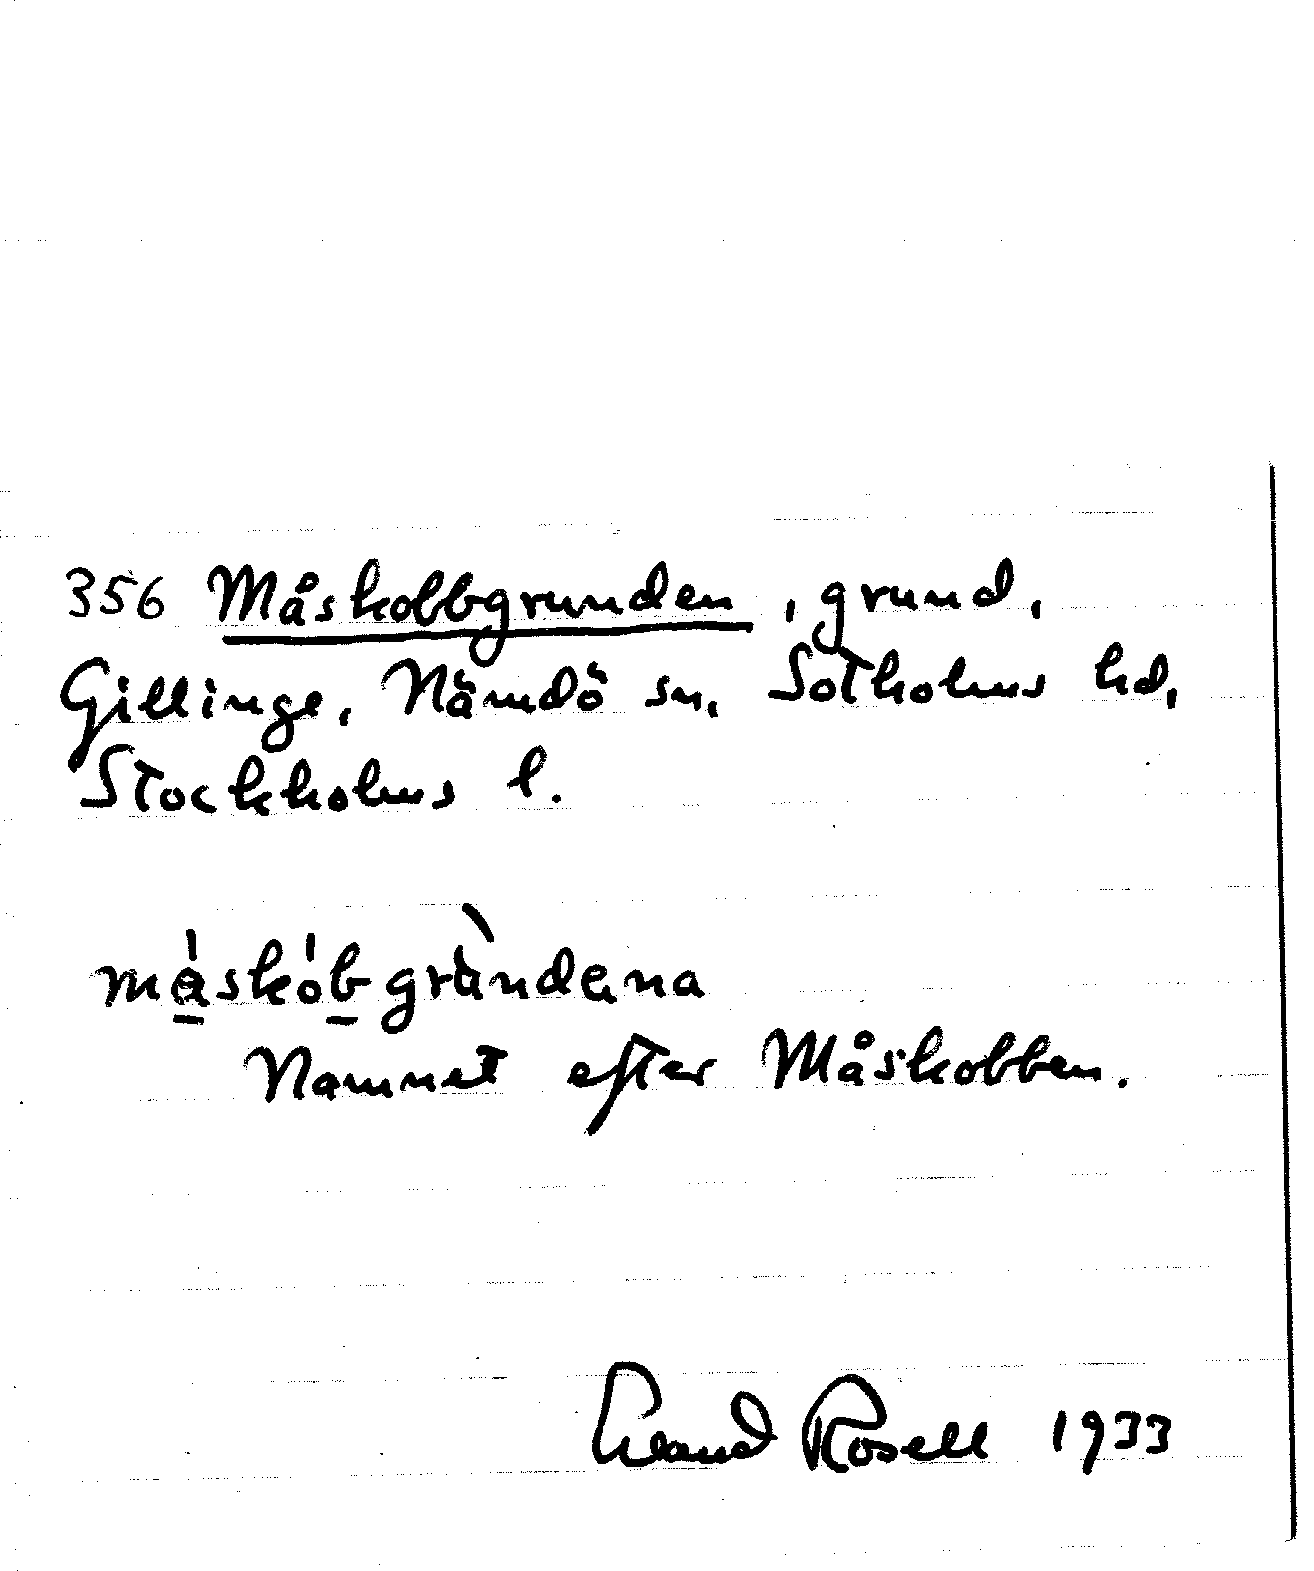 356 Måskobbgrunden, grund,
Gillinge, Nämdö sn, Sotholms hd,
Stockholms l.
måskob̲gru̇ndɐna
Namnet efter Måskobben.
Erland Rosell 1933